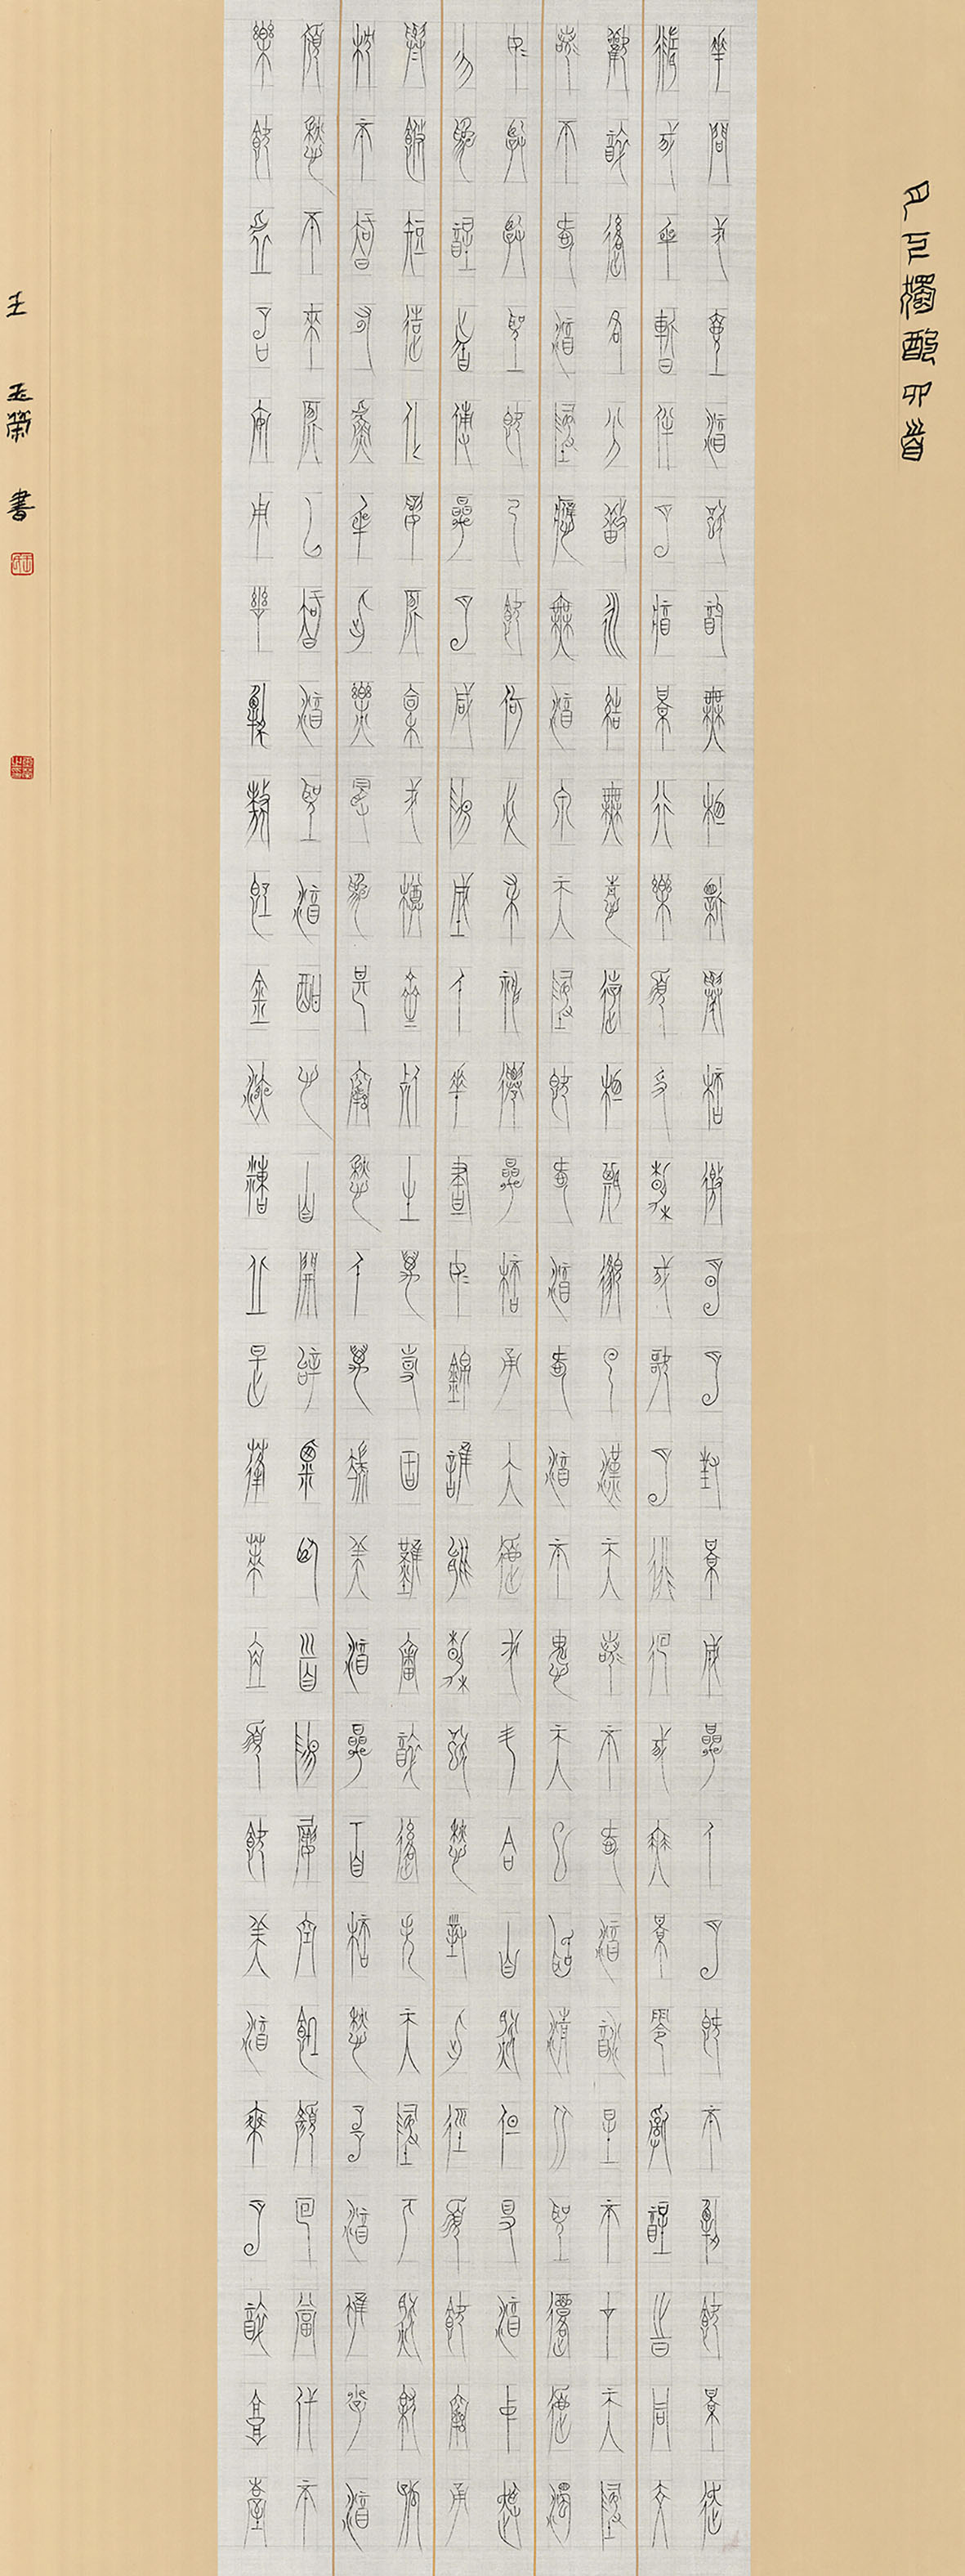 月下獨酌四首
花間一壺酒獨酌無相親舉杯邀明月對影成三人月既不解飲影徒
隨我身暫伴月將影行樂須及春我歌月徘徊我舞影零亂醒時同交
歡醉後各分散永結無情遊相期邈雲漢天若不愛酒酒星不在天地
若不愛酒地應無酒泉天地既愛酒愛酒不愧天已聞清比聖復道濁
如賢賢聖既已飲何必求神仙三杯通大道一斗合自然但得酒中趣
勿為醒者傳三月咸陽城千花晝如錦誰能春獨愁對此徑須飲窮通
與修短造化夙所稟一樽齊死生萬事固難審醉後失天地兀然就孤
枕不知有吾身此樂最為甚窮愁千萬端美酒三百杯愁多酒雖少酒
傾愁不來所以知酒聖酒酣心自開辭粟臥首陽屢空飢顏回當代不
樂飲虛名安用哉蟹螯即金液糟丘是蓬萊且須飲美酒乘月醉高臺
王玉榮書